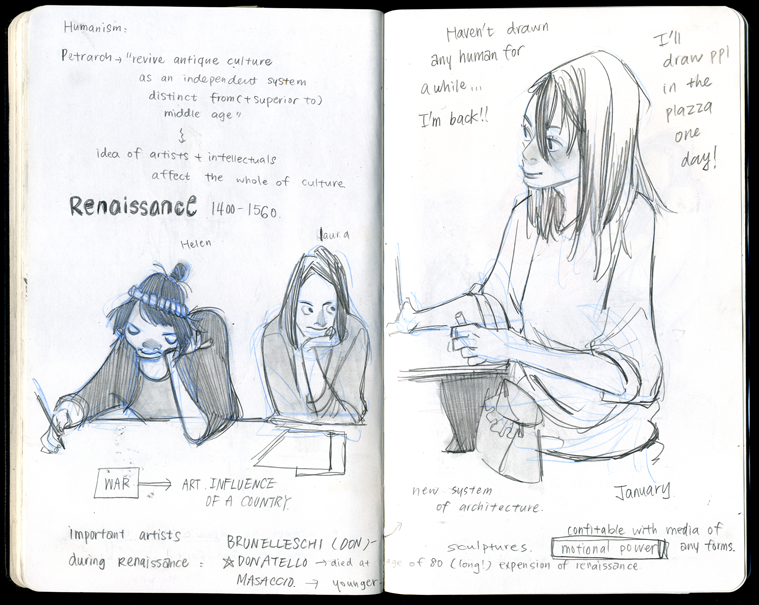 Humanism:
Petrarch → "revive antique culture
as an independent system
distinct from (+ superior to)
middle age"
idea of artists + intellectuals
affect the whole of culture
Renaissance 1400-1560.
Helen
Laura
WAR → ART. INFLUENCE
OF A COUNTRY.
important artists
during Renaissance :
BRUNELLESCHI (DON)-
☆DONATELLO → died at
MASACCIO. → younger-
Haven't drawn
any human for
a while...
I'm back!!
I'll
draw ppl
in the
plazza
one
day!
January
new system
of architecture.
sculptures.
age of 80 (long!) expension of renaissance.
confitable with media of
motional power any forms.